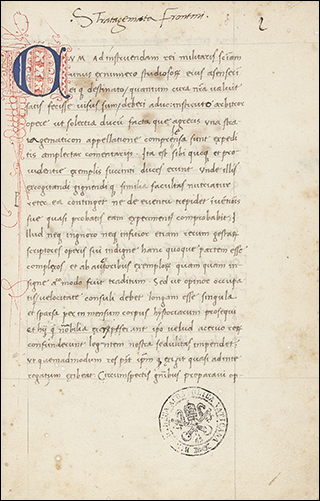 Stratagemata Frontini.
2
CUM ad instruendam rei militaris sciam
unus ex numero studiosoꝝ eius accesseri
eiq destinato, quantum cura nra valuit
satis fecisse uisus sum: deberi adhuc instituto arbitror
opere ut solertia ducū facta que a grecis una stra
appellatione comprensa sunt expedi
tis amplectar comentariis. Ita est sibi quoq et pro
videntie exemplis succinti duces erunt unde illis
excogitandi gignendiq similia facultas nutriatur
retea continget ne de euentu trepidet iuētiōis
sue quasi probatis eam experimentis comprobabit. I
llud neq ignoro neq inficior etiam rerum gestaꝝ
scriptores operis sui indigne hanc quoque partem esse
complexos et ab auctoribus exemploꝝ quam quam in
signe modo fuit traditum. Sed ut opinor occupa
tis velocitate consuli debet longum esse singula
et sparsa per immensum corpus hystoriarum prosequi
et hij q notabilia excerpserunt ipo velud acervo reꝝ
confunderunt legentem nostra sedulitas impendet
ut quemadmodum res poscit ipm exigit quasi ad inte
rogatum exibeat. Circumspectis generibus preparavi op
BIBLIOTHECA APOSTOLICA VATICANA